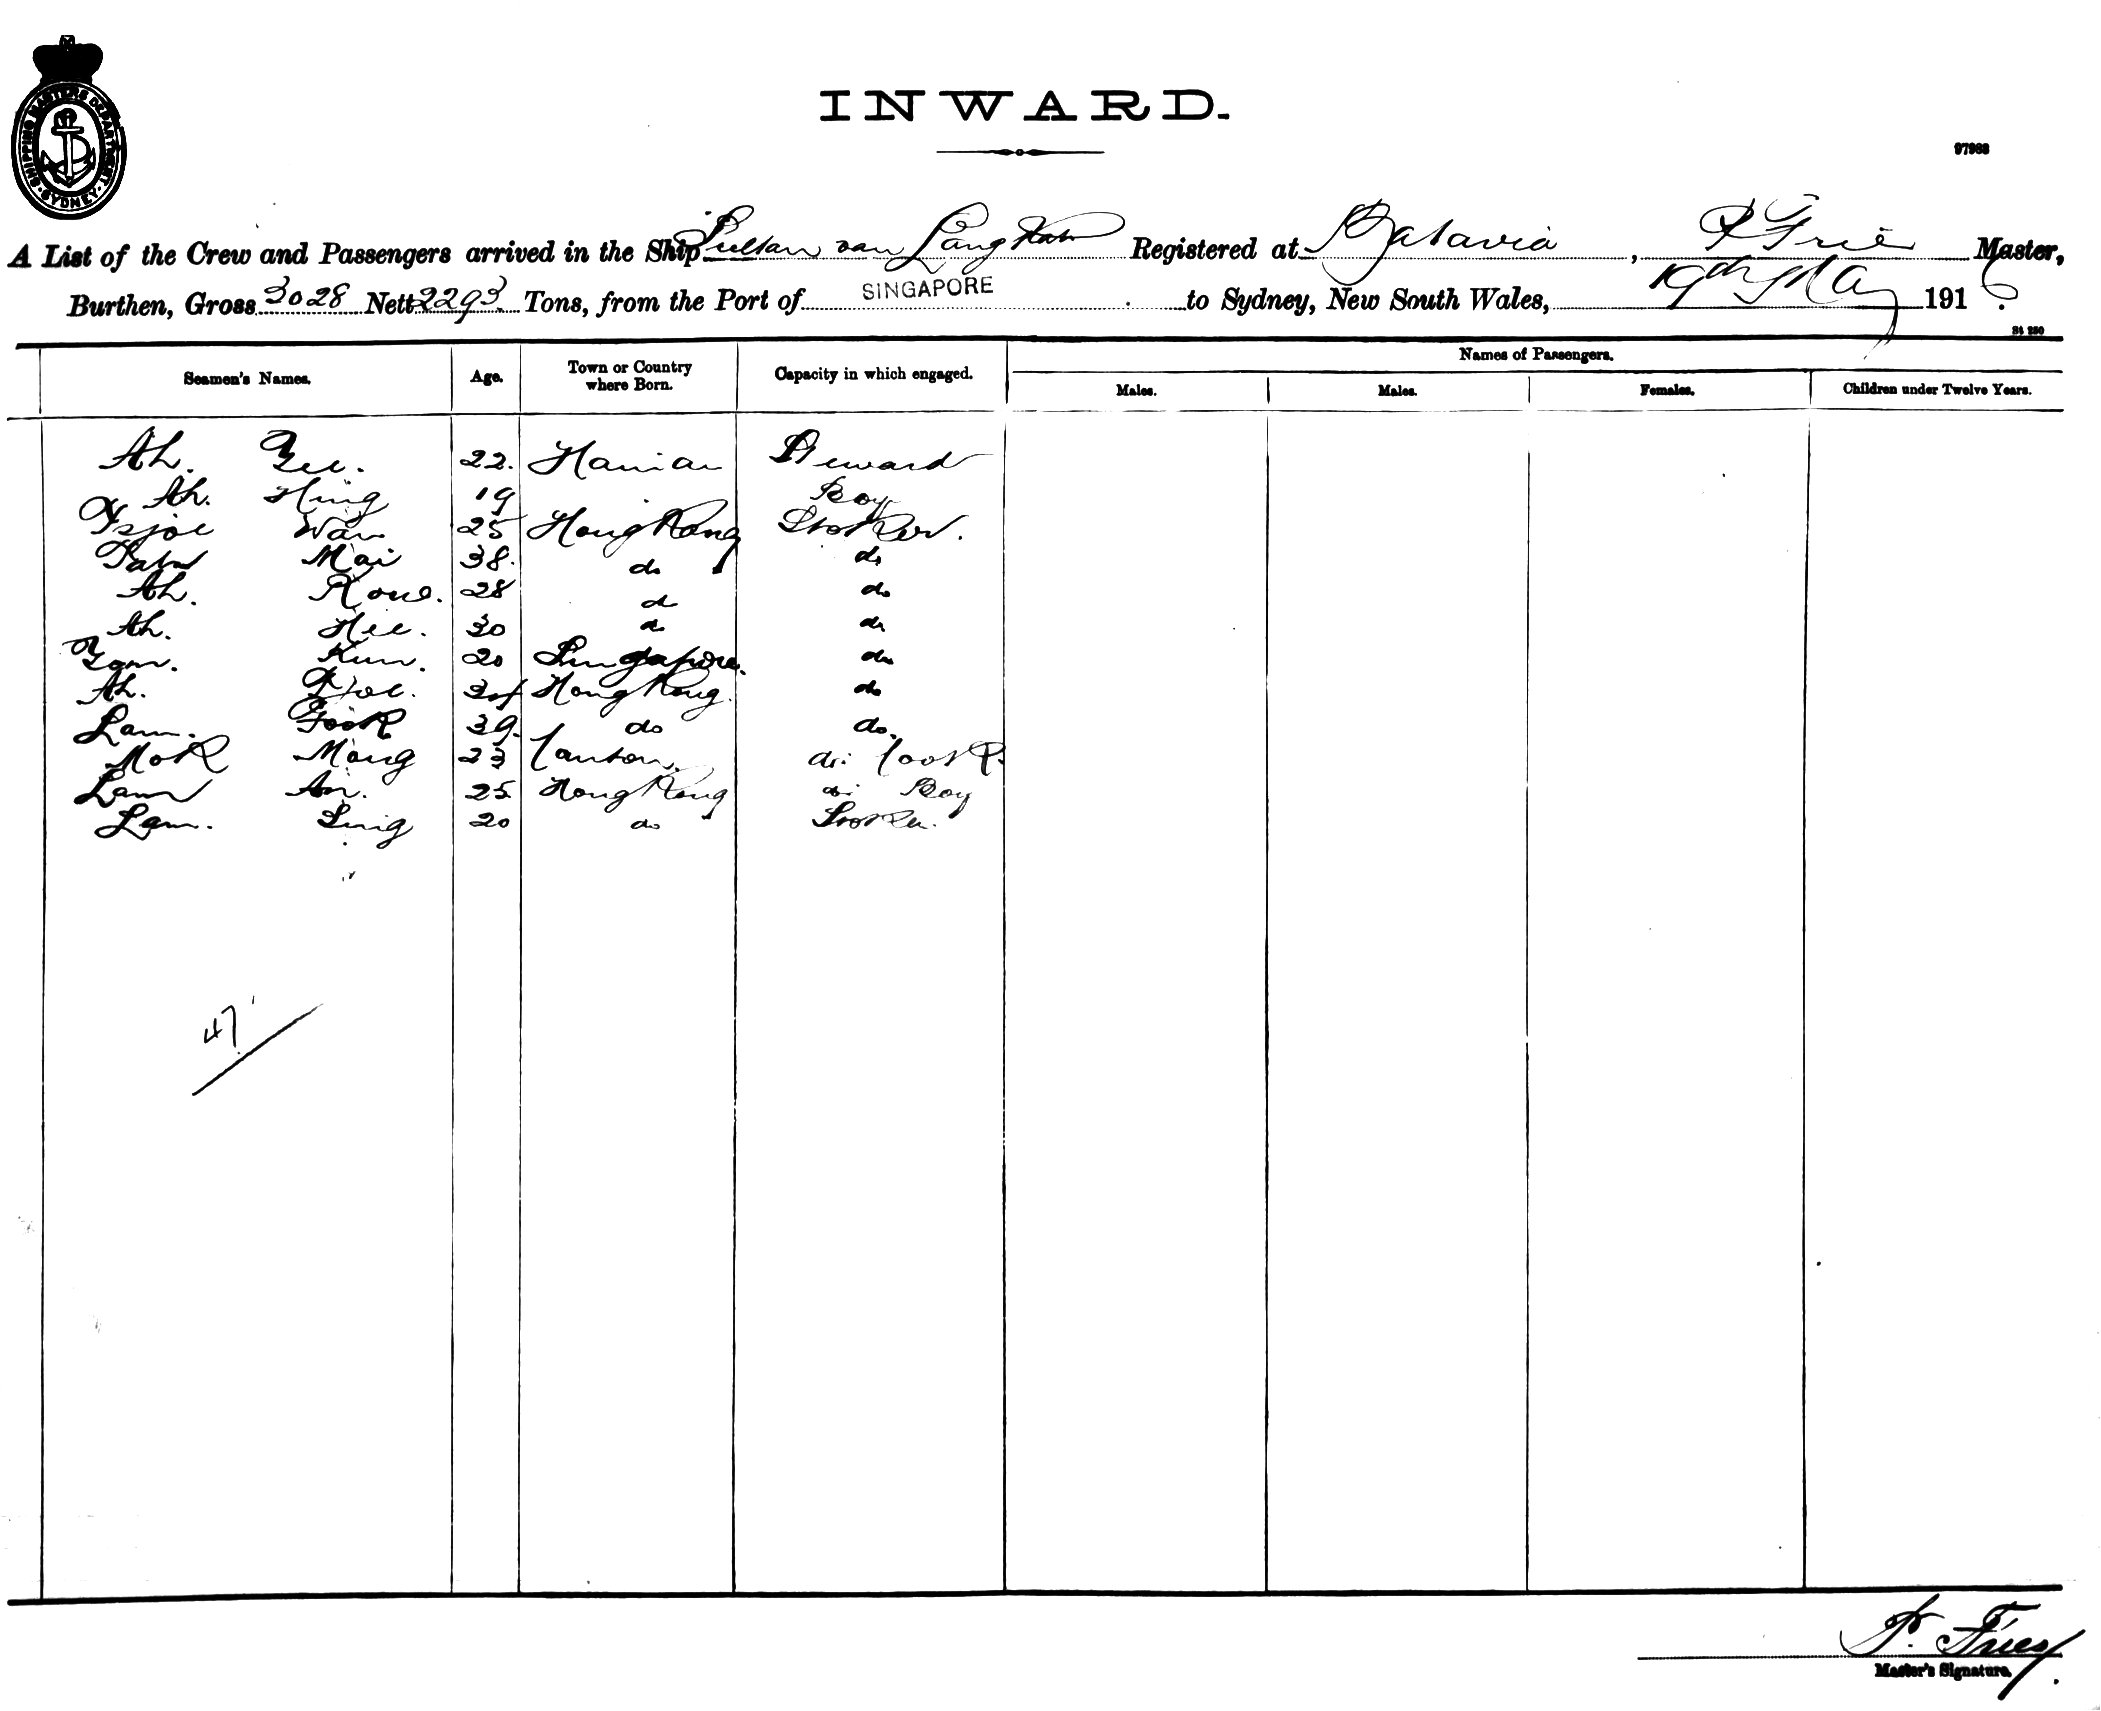 SHIPPING MASTERS DEPARTMENT. SYDNEY.
INWARD.
97963
A List of the Crew and Passengers arrived in the Ship Sultan van Langkat Registered at Batavia, P Fries Master,
Burthen, Gross 3028 Nett 2293 Tons, from the Port of SINGAPORE to Sydney, New South Wales, 19th May 1916
St 250
Seamen's Names. Age. Town or Country where Born. Capacity in which engaged. Names of Passengers.
Males. Males. Females. Children under Twelve Years.
Ah. Yee. 22. Hainan Steward
Ah. Hing 19 Boy
Tsjoe Wan 25 Hong Kong Stoker.
Mai 38. do do
Ah. 28 do do
Ah. Hee. 30 do do
Yam. Kun. 20 Singapore. do
Ah. Tjoe. 34 Hong Kong. do
Lam. Fook 39. do do.
Mok Mong 23 Canton. do: Cook
Lam An. 25 Hong Kong do: Boy
Lam. Sing 20 do Stoker.
47
P. Fries.
Master's Signature.